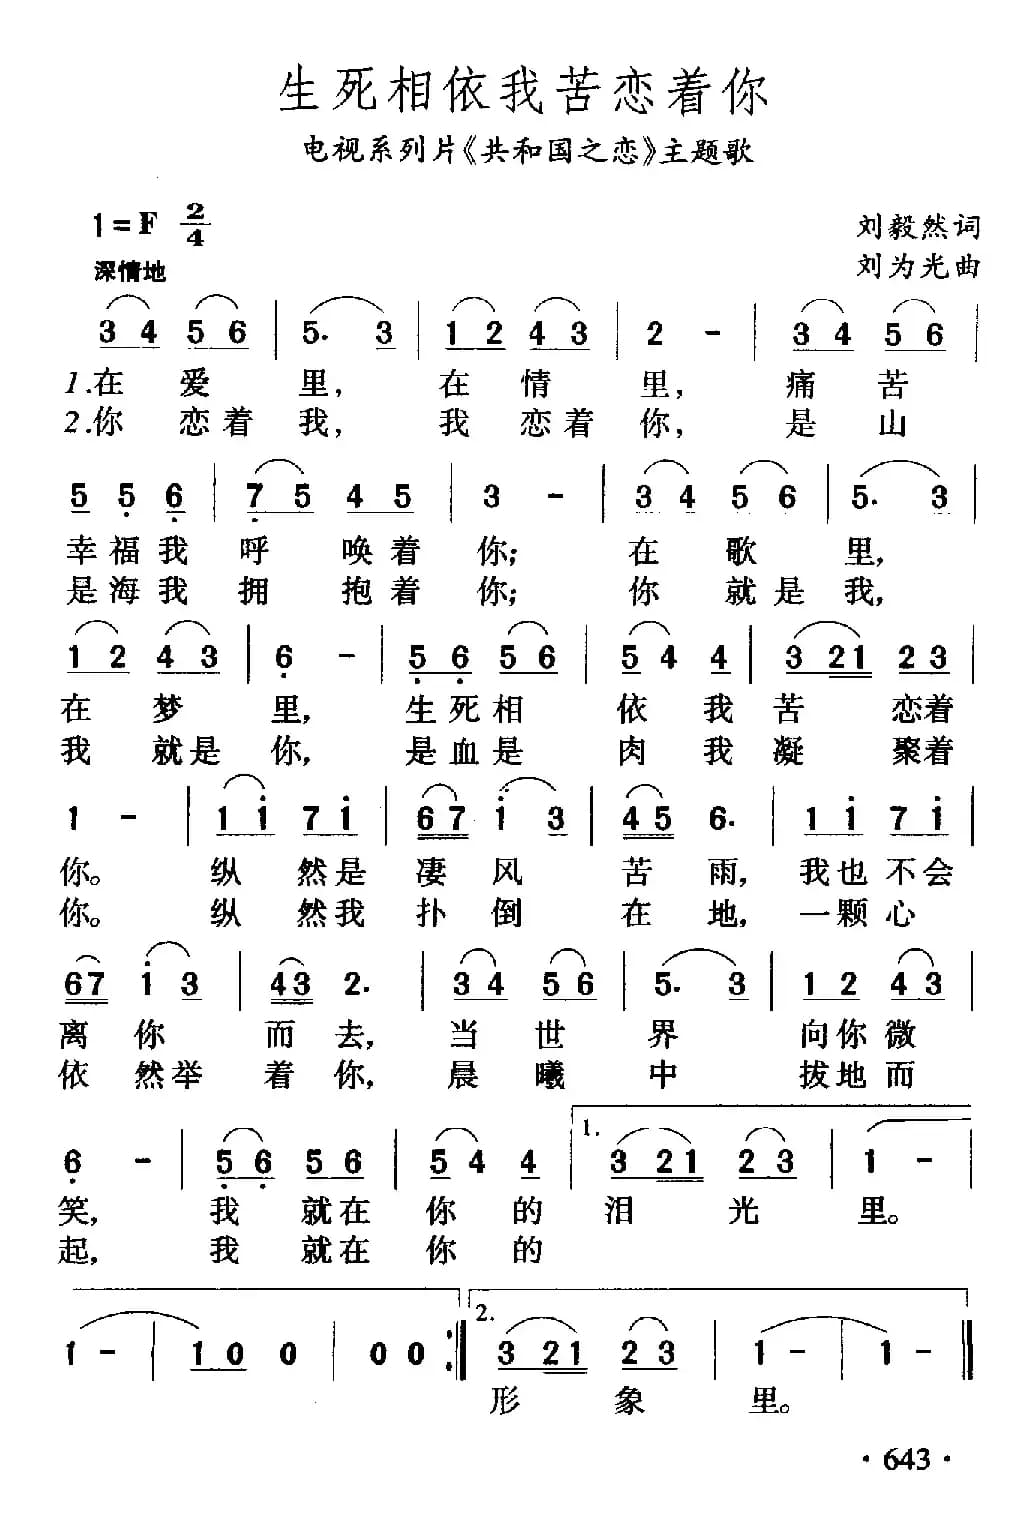 生死相依我苦恋着你
电视系列片《共和国之恋》主题歌
1=F 2/4
刘毅然词
深情地
刘为光曲
3 4 5 6 | 5. 3 | 1 2 4 3 | 2 - | 3 4 5 6 |
1.在 爱 里, 在 情 里, 痛 苦
2.你 恋着 我, 我 恋着 你, 是 山
5 5 6 | 7 5 4 5 | 3 - | 3 4 5 6 | 5. 3 |
幸福我 呼 唤着 你; 在 歌 里,
是海我 拥 抱着 你; 你 就是 我,
1 2 4 3 | 6 - | 5 6 5 6 | 5 4 4 | 3 21 2 3 |
在 梦 里, 生死相 依 我 苦 恋着
我 就是 你, 是血是 肉 我 凝 聚着
1 - | 1 1 7 1 | 67 1 3 | 45 6. | 1 1 7 1 |
你。 纵 然是 凄 风 苦 雨, 我也不会
你。 纵 然我 扑 倒 在 地, 一颗心
67 1 3 | 43 2. | 3 4 5 6 | 5. 3 | 1 2 4 3 |
离 你 而 去, 当 世 界 向你微
依 然举 着 你, 晨 曦 中 拔地而
6 - | 5 6 5 6 | 5 4 4 | 1. 3 21 2 3 | 1 - |
笑, 我 就在 你 的 泪 光 里。
起, 我 就在 你 的
1 - | 1 0 0 | 0 0 :| 2. 3 21 2 3 | 1 - | 1 - |
形 象 里。
· 643 ·